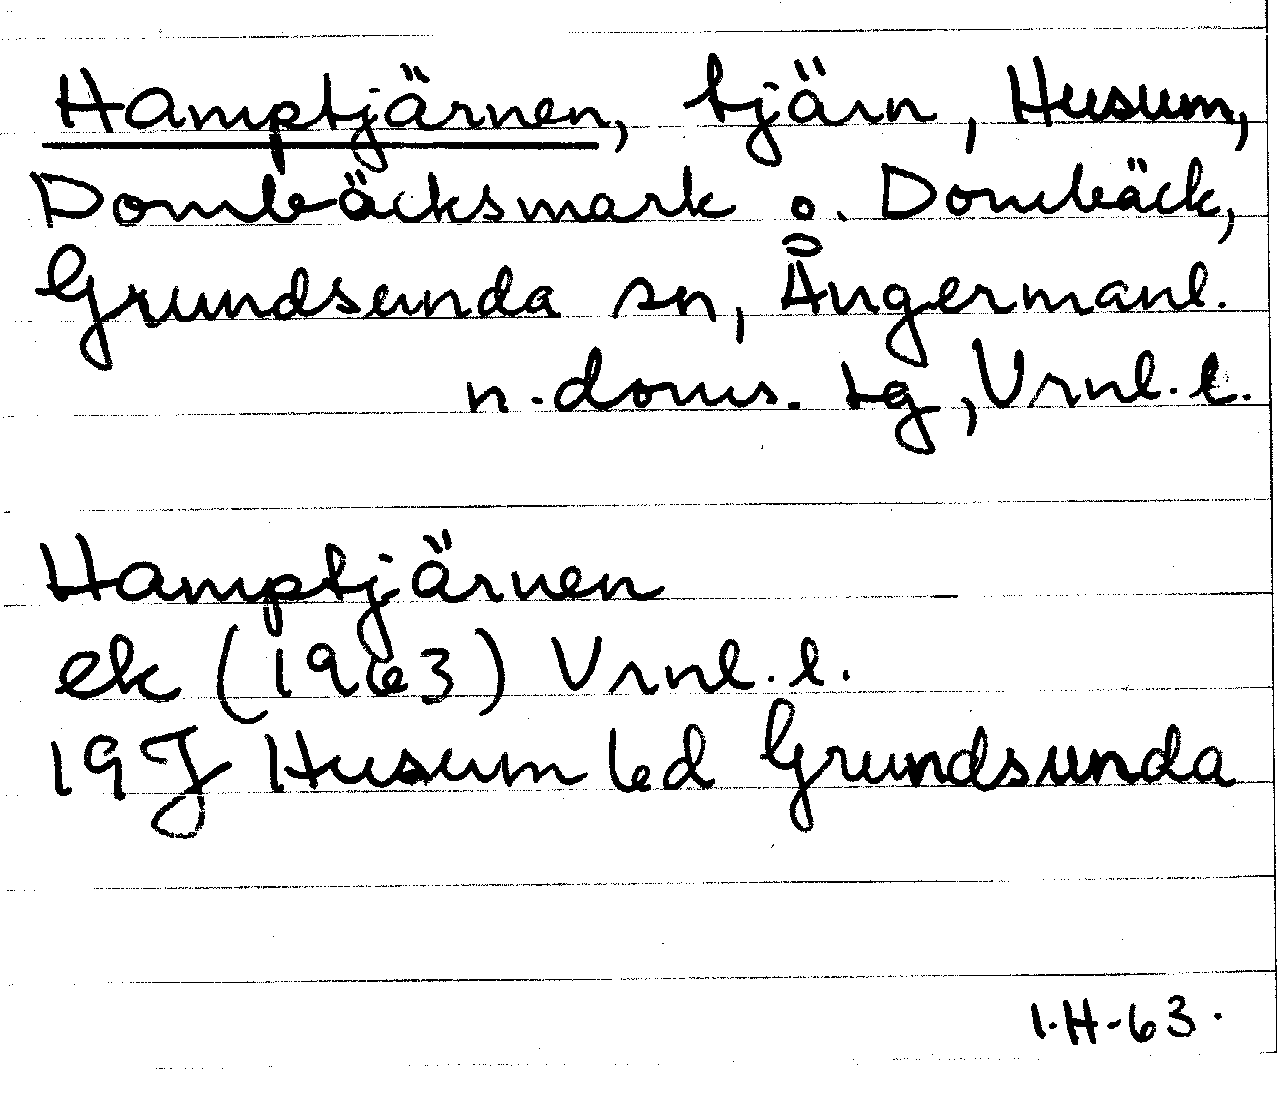 Hamptjärnen, tjärn, Husum,
Dombäcksmark o. Dombäck,
Grundsunda sn, Ångermanl.
n. doms. tg, Vrnl. l.
Hamptjärnen
ek (1963) Vrnl. l.
19J Husum 6d Grundsunda
I.H-63.